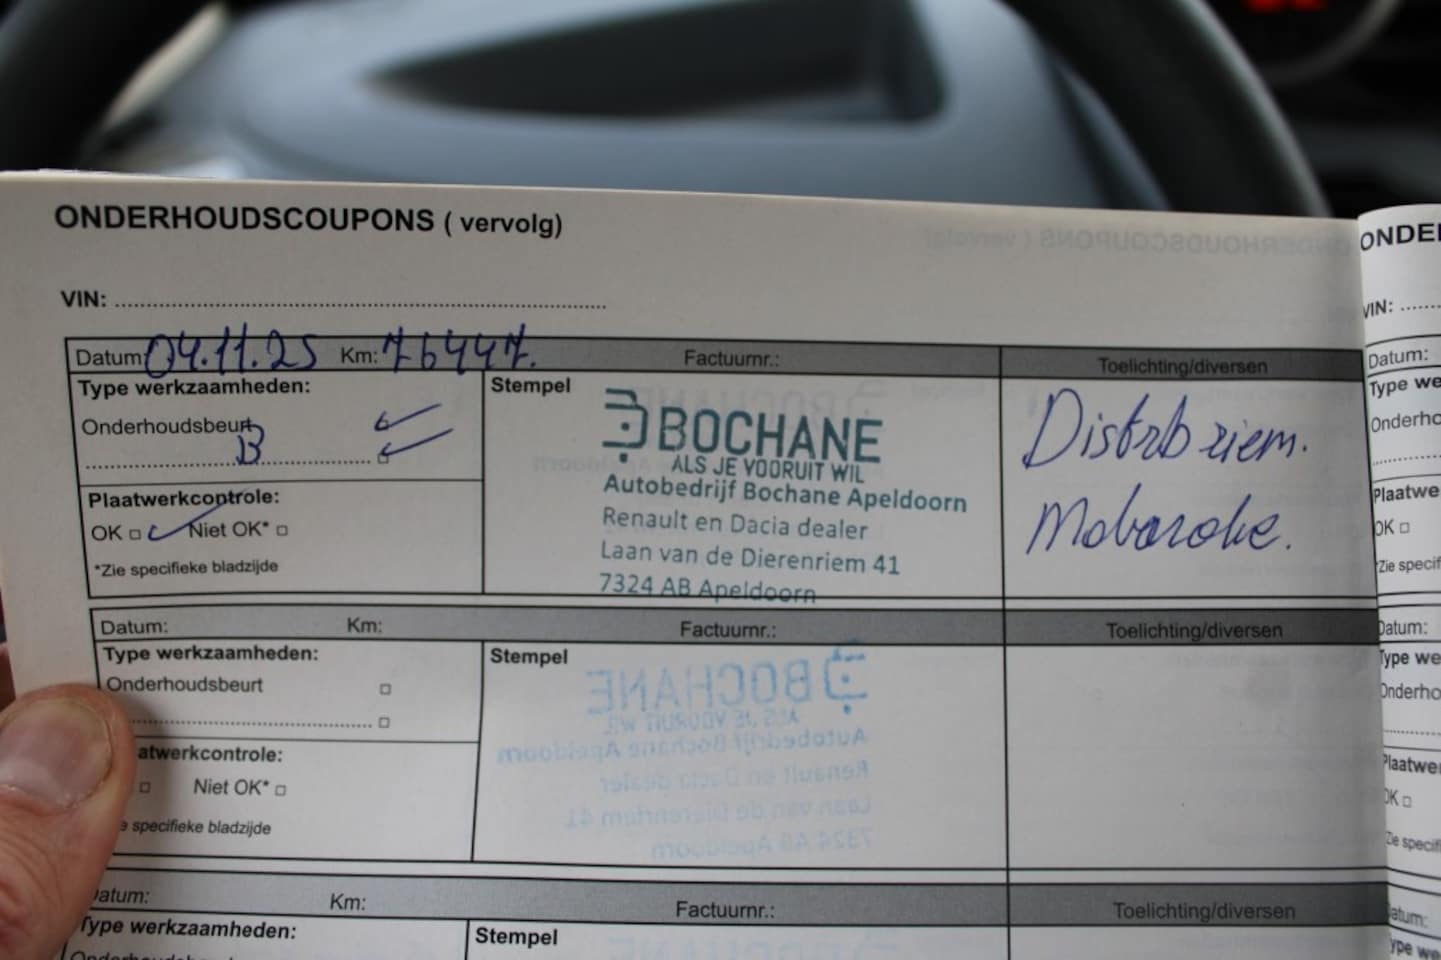 ONDERHOUDSCOUPONS ( vervolg)
VIN:
Datum: 04.11.25 Km: 76447. Factuurnr.: Toelichting/diversen
Type werkzaamheden:
Onderhoudsbeurt
B
Plaatwerkcontrole:
OK Niet OK*
*Zie specifieke bladzijde
Stempel
BOCHANE
ALS JE VOORUIT WIL
Autobedrijf Bochane Apeldoorn
Renault en Dacia dealer
Laan van de Dierenriem 41
7324 AB Apeldoorn
Distrb riem.
Datum: Km: Factuurnr.: Toelichting/diversen
Type werkzaamheden:
Onderhoudsbeurt
atwerkcontrole:
Niet OK*
e specifieke bladzijde
Stempel
Datum: Km: Factuurnr.: Toelichting/diversen
Type werkzaamheden:
Stempel
ONDE
VIN:
Datum:
Type we
Onderho
Plaatwe
OK
*Zie specif
Datum:
Type we
Onderho
Plaatwe
OK
Zie specif
atum:
ype we